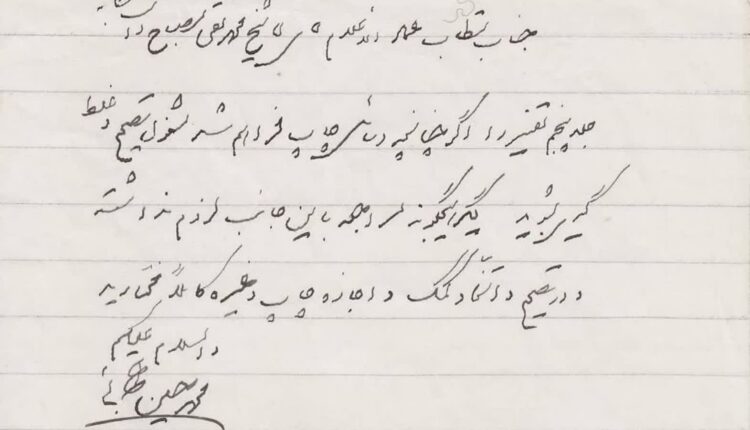 جناب مستطاب عمدة الاعلام آقای شیخ محمدتقی مصباح دا
جلد پنجم تفسیر را اگر چنانچه وسائل چاپ فراهم شد مشغول تصحیح و غلط
گیری شوید دیگر اینگونه مراجعه باین جانب لزوم نداشته
و در تصحیح و استمداد کمک و اجازه چاپ و غیره کاملاً مختارید
والسلام علیکم
محمدحسین طباطبائی